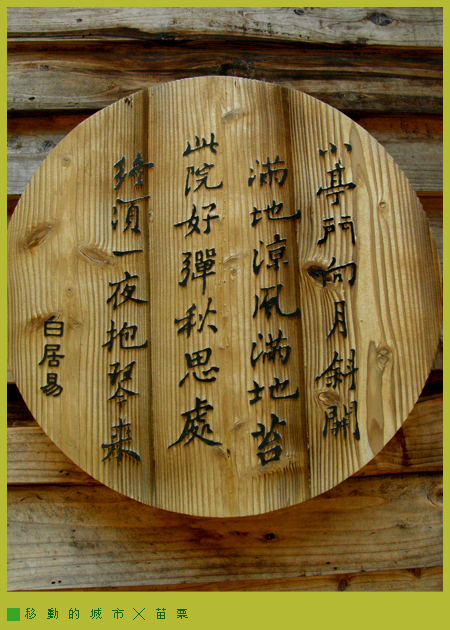 小亭門向月斜開
滿地涼風滿地苔
此院好彈秋思處
終須一夜抱琴来
白居易
移動的城市╳苗栗